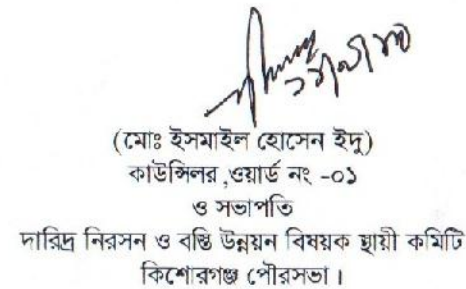 (মোঃ ইসমাইল হোসেন ইদু)
কাউন্সিলর ,ওয়ার্ড নং -০১
ও সভাপতি
দারিদ্র নিরসন ও বস্তি উন্নয়ন বিষয়ক স্থায়ী কমিটি
কিশোরগঞ্জ পৌরসভা।